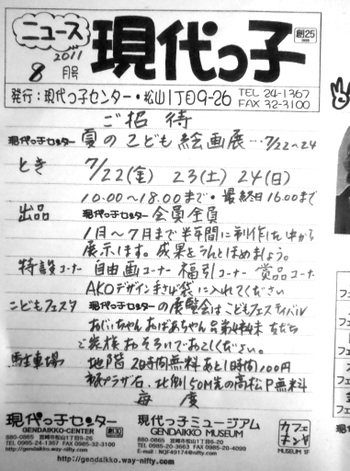 ニュース
2011
8月号
現代っ子
創25
発行：現代っ子センター・松山1丁目9-26
TEL 24-1367
FAX 32-3100
ご招待
現代っ子センター 夏のこども絵画展…7/22〜24
とき 7/22(金) 23(土) 24(日)
10:00〜18:00まで・最終日16:00まで
出品 現代っ子センター会員全員
1月〜7月まで半年間に制作した中から
展示します。成果をうんとほめましょう。
特設コーナー 自由画コーナー 福引コーナー 賞品コーナー
AKOデザイン手さげ袋に入れてください
こどもフェスタ 現代っ子センターの展覧会はこどもフェスティバル
おじいちゃんおばあちゃん兄弟姉妹友だち
ご家族おそろいでおこしください。
駐車場 地階 2時間無料あと1時間100円
プラザ石、北側50M先の高松P無料
毎度
現代っ子センター
GENDAIKKO-CENTER
880-0865 宮崎市松山1丁目9-26
TEL 0985-24-1367 FAX 0985-32-3100
http://gendaikko.way-nifty.com
現代っ子ミュージアム
GENDAIKKO MUSEUM
カフェ
MUSEUM 1F